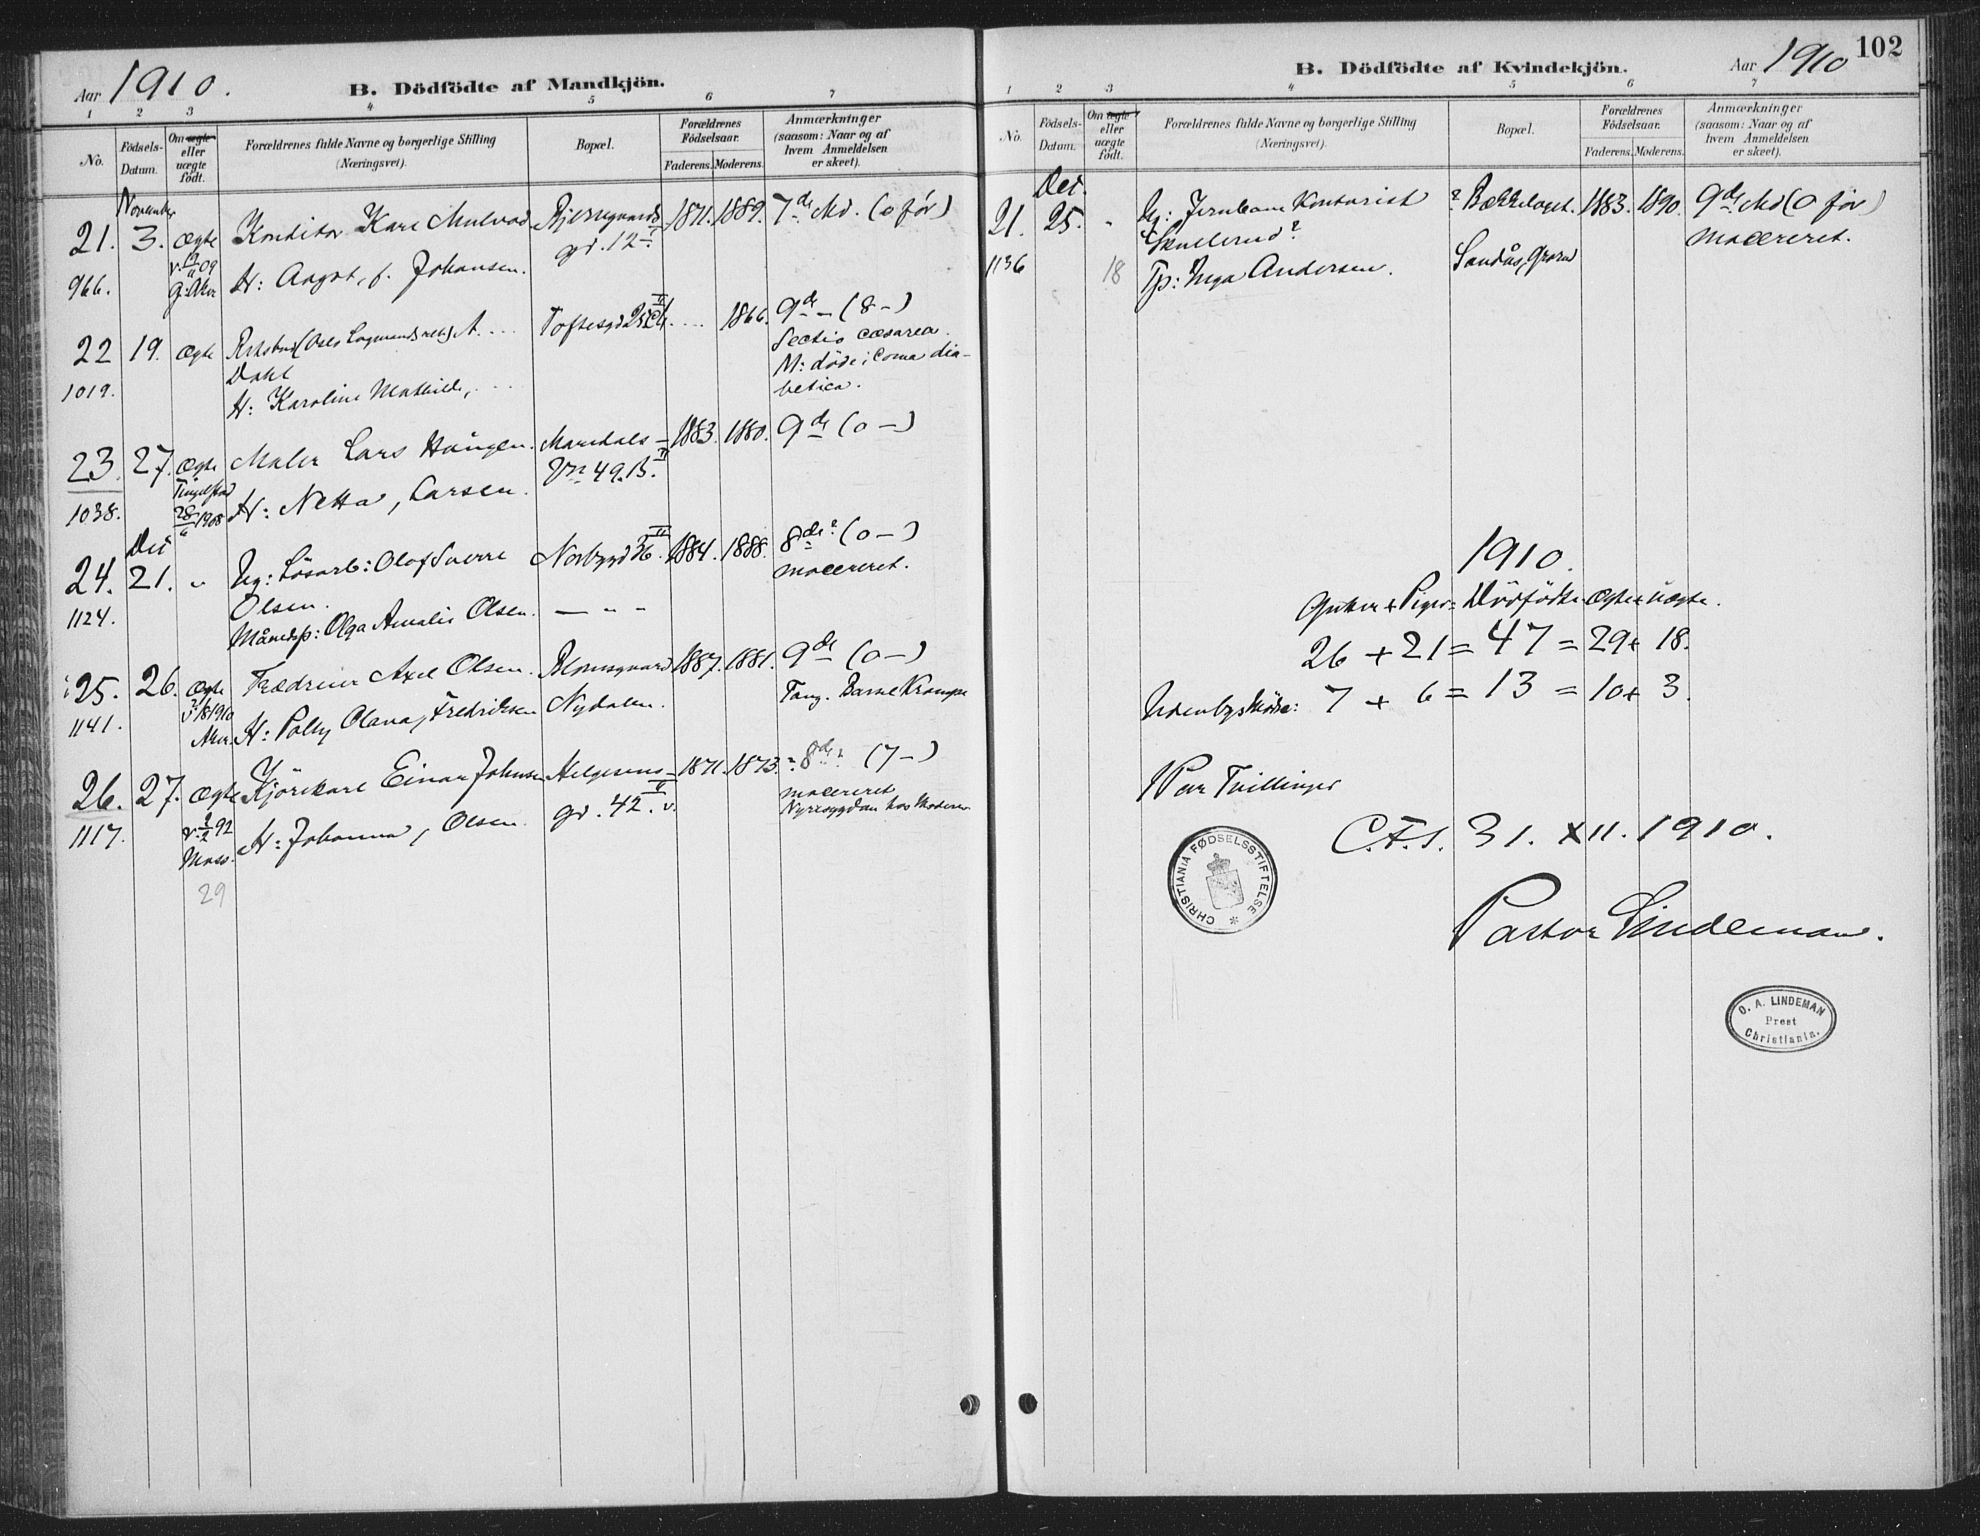 Aar 1910.
B. Dödfödte af Mandkjön.
1 2 3 4 5 6 7
No.
Födsels-Datum.
Om ægte eller uægte födt.
Forældrenes fulde Navne og borgerlige Stilling (Næringsvei).
Bopæl.
Forældrenes Födselsaar.
Faderens. Moderens.
Anmærkninger (saasom: Naar og af hvem Anmeldelsen er skeet).
November
21. 3. Ægte Konditor Karl 1871. 1889. 7de Md. (0 för)
gd. 12
966. G: Aker H: Aagot, f. Johansen.
22 19. Ægte Toftesgd 1866. 9de – (8 –)
Dahl Sectio cæsarea.
M: döde i Coma dia-
1019. H: Karoline Mathilde, betica.
23. 27. Ægte Maler Lars Haugen. Maridals- 1883. 1880. 9de (0 –)
Tingelstad 49.B. II
1038. 28/6 1908 H: Netta, Larsen.
Des
24. 21. „ Ug: Lösarb: Olaf Sverre Norbygd 36. 1884. 1888. 8de? (0 –)
Olsen. macereret.
1124. Månedsp: Olga Amalie Olsen. — „ –
25. 26. Ægte Axel Olsen. 1887. 1881. 9de (0 –)
1141. Aker. H: Polly Olava, Fredriksen Nydalen. Tang.
26. 27. Ægte Kjörekarl Einar Johnsen Helgesens- 1871. 1873. 8de? (7 –)
gd. 42. v. macereret
1117. v. 2/2 92 H: Johanna, Olsen. Nyresygdom hos Moderen
Moss.
29
102
B. Dödfödte af Kvindekjön.
Aar 1910
1 2 3 4 5 6 7
No.
Födsels-Datum.
Om ægte eller uægte födt.
Forældrenes fulde Navne og borgerlige Stilling (Næringsvei).
Bopæl.
Forældrenes Födselsaar.
Faderens. Moderens.
Anmærkninger (saasom: Naar og af hvem Anmeldelsen er skeet).
Des.
21. 25. „ Ug: Jernbane Kontorist ? Bækkelaget. 1883. 1890. 9de Md (0 för)
Skullerud? macereret.
1136 18 Tp: Inga Andersen. Sandås, Grorud
1910.
Gutter + Piger = Dödfödte Ægte + uægte.
26 + 21 = 47 = 29 + 18.
Udenbysboende: 7 + 6 = 13 = 10 + 3.
1 Par Tvillinger
C.F.S. 31. XII. 1910.
CHRISTIANIA FØDSELSSTIFTELSE *
Pastor Lindeman.
O. A. LINDEMAN
Prest
Christiania.